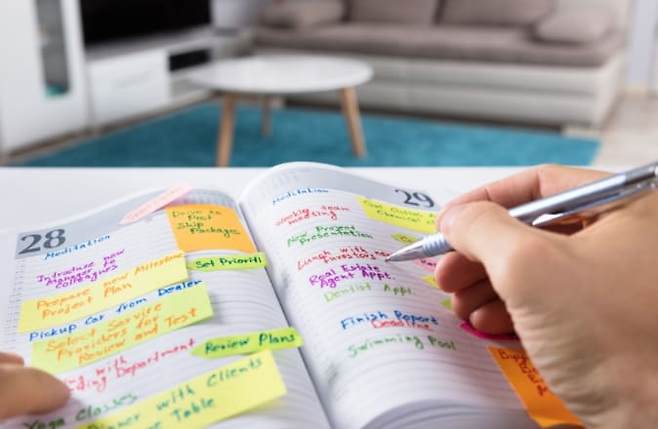 28
Meditation
Drive to
Post
Ship
Packages
Introduce new
Manager to
Colleagues
Set Prioriti
Prepare new Milestone
Project Plan
Pickup Car from Dealer
Select Service
Providers for Test
Review and
Review Plans
ding with
Department
Yoga Classes
Dinner with Clients
Table
29
Meditation
Weekly Team
Meeting
New Project
Presentation
Lunch with
Investors
Real Estate
Agent Appt.
Dentist Appt.
Finish Report
Deadline
Swimming Pool